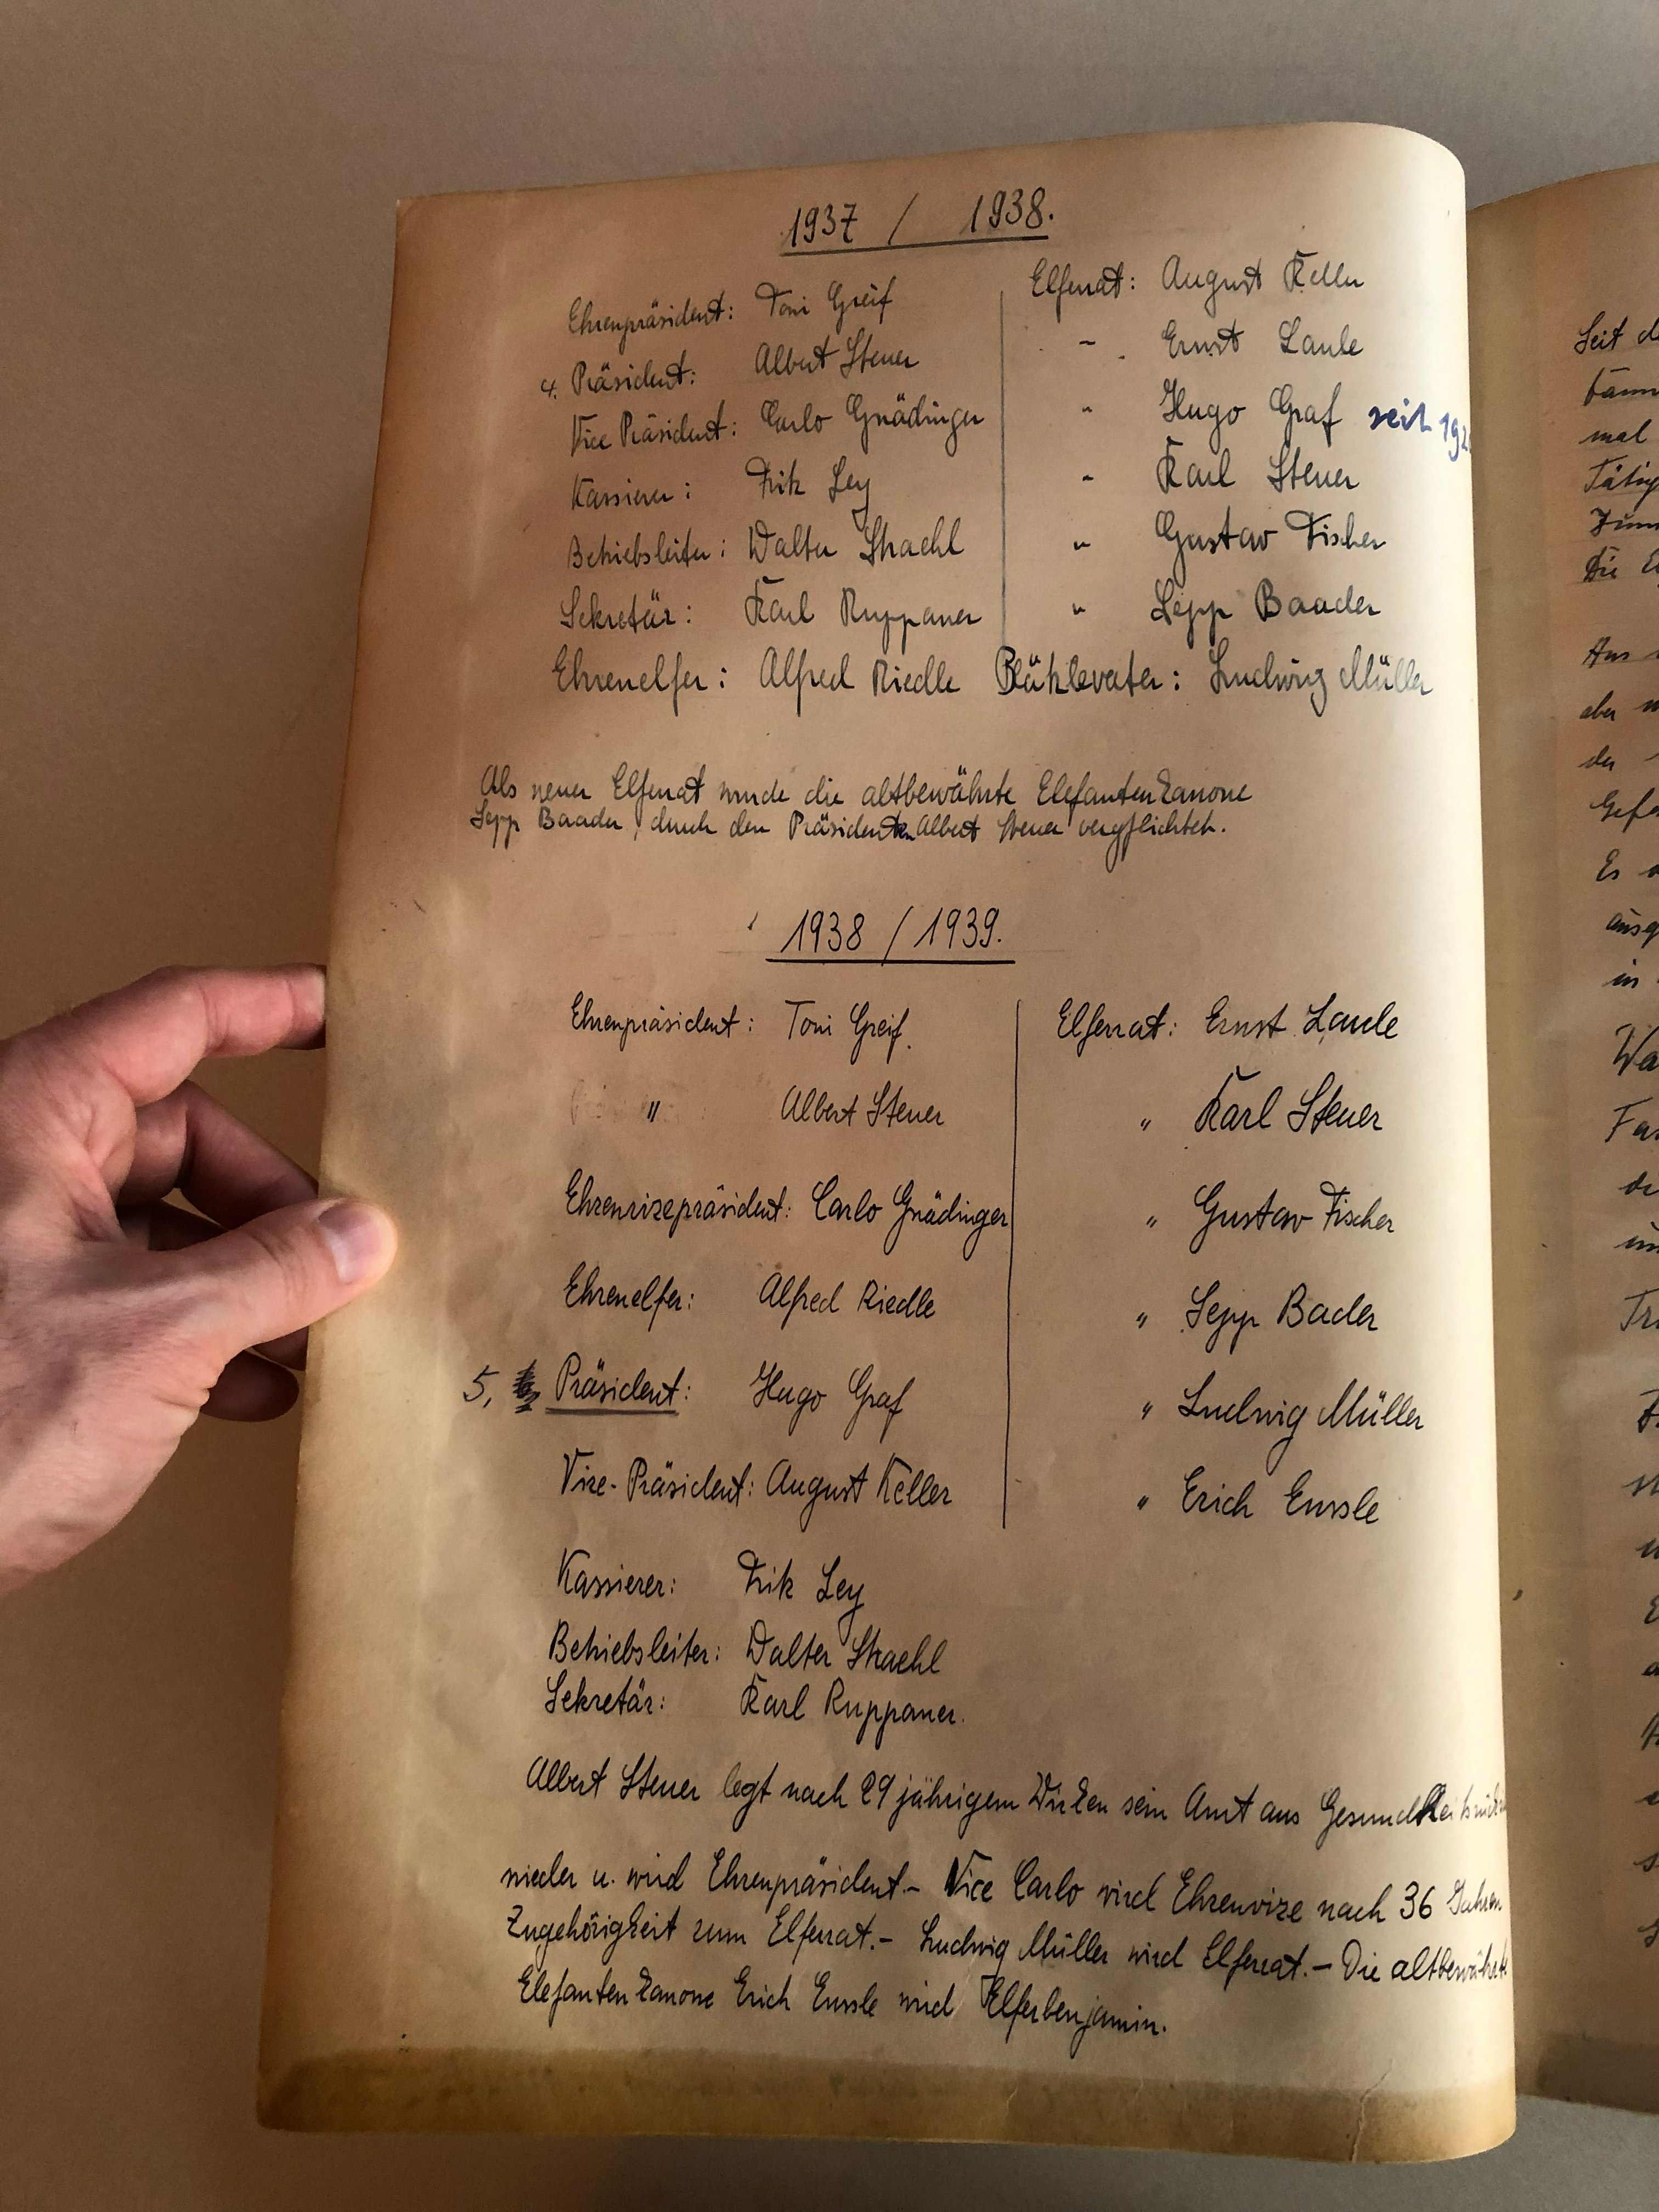 1937 / 1938.
Ehrenpräsident: Toni Greif
4. Präsident: Albert Steuer
Vice Präsident: Carlo Gnädinger
Kassierer: Frik Ley
Betriebsleiter: Walter Straehl
Sekretär: Karl Ruppaner
Elferrat: August Keller
" Ernst Laule
" Hugo Graf seit 192
" Karl Steuer
" Gustav Fischer
" Sepp Baader
Ehrenelfer: Alfred Riedle Blätzlevater: Ludwig Müller
Als neuer Elferrat wurde die altbewährte Elefantenkanone
Sepp Baader, durch den Präsidenten Albert Steuer verpflichtet.
1938 / 1939.
Ehrenpräsident: Toni Greif.
" Albert Steuer
Ehrenvizepräsident: Carlo Gnädinger
Ehrenelfer: Alfred Riedle
5. Präsident: Hugo Graf
Vize-Präsident: August Keller
Kassierer: Frik Ley
Betriebsleiter: Walter Straehl
Sekretär: Karl Ruppaner.
Elferrat: Ernst Laule
" Karl Steuer
" Gustav Fischer
" Sepp Bader
" Ludwig Müller
" Erich Enssle
Albert Steuer legt nach 29 jährigem Wirken sein Amt aus
nieder u. wird Ehrenpräsident. – Vice Carlo wird Ehrenvize nach 36 Jahren
Zugehörigkeit zum Elferrat. – Ludwig Müller wird Elferrat. – Die altbewährte
Elefantenkanone Erich Enssle wird Elferbenjamin.
Seit
mal
Die
Aus
aber
der
Es
in